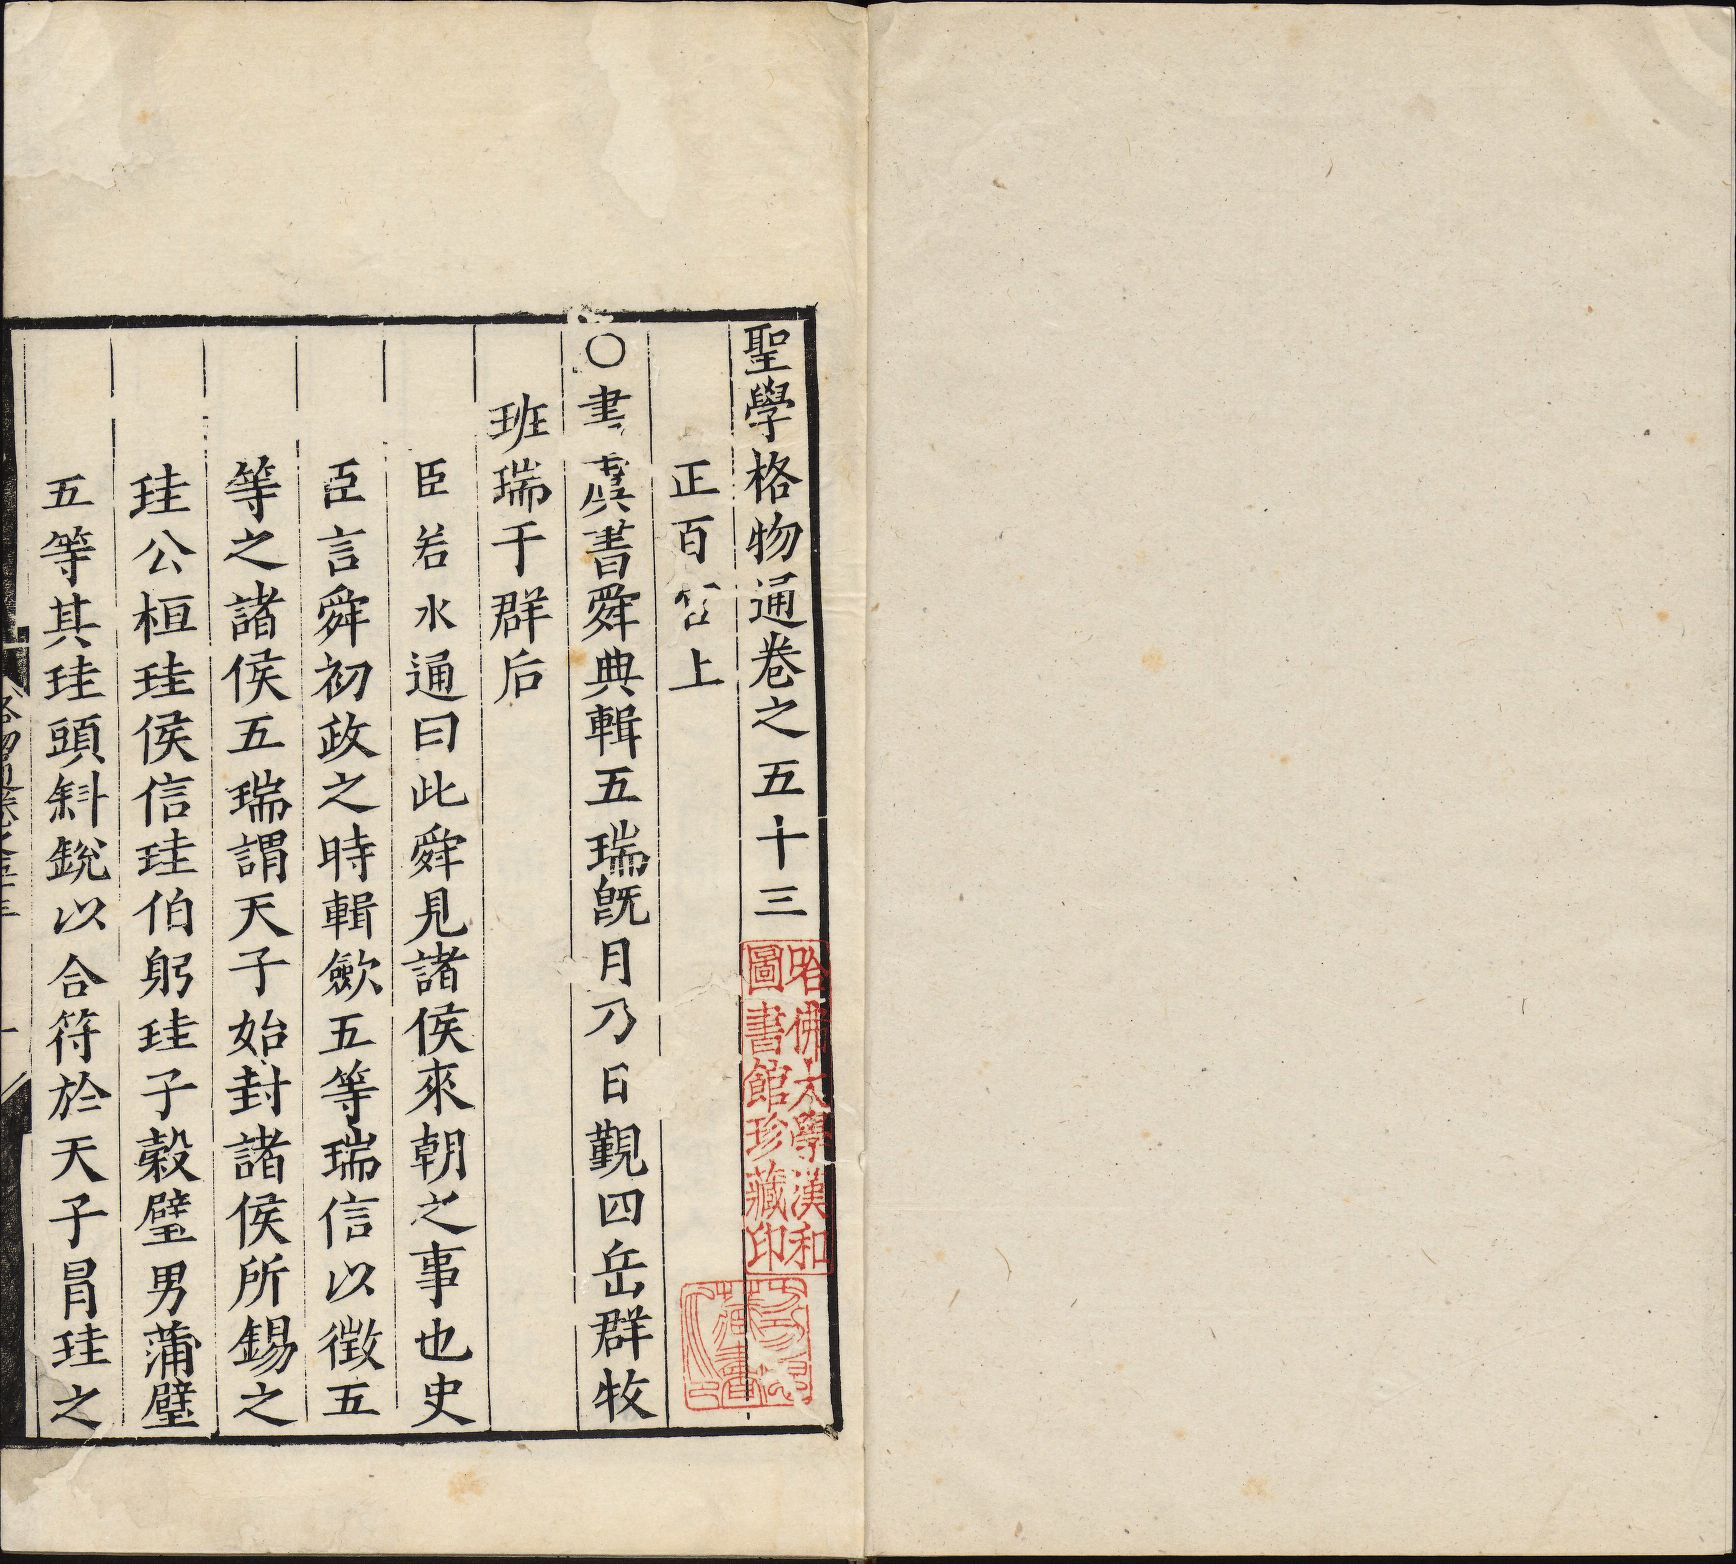 聖學格物通卷之五十三
正百官上
○書虞書舜典輯五瑞旣月乃日覲四岳群牧
班瑞于群后
臣若水通曰此舜見諸侯來朝之事也史
臣言舜初政之時輯歛五等瑞信以徵五
等之諸侯五瑞謂天子始封諸侯所錫之
珪公桓珪侯信珪伯躬珪子穀璧男蒲璧
五等其珪頭斜銳以合符於天子冐珪之
哈佛大學漢和
圖書館珍藏印